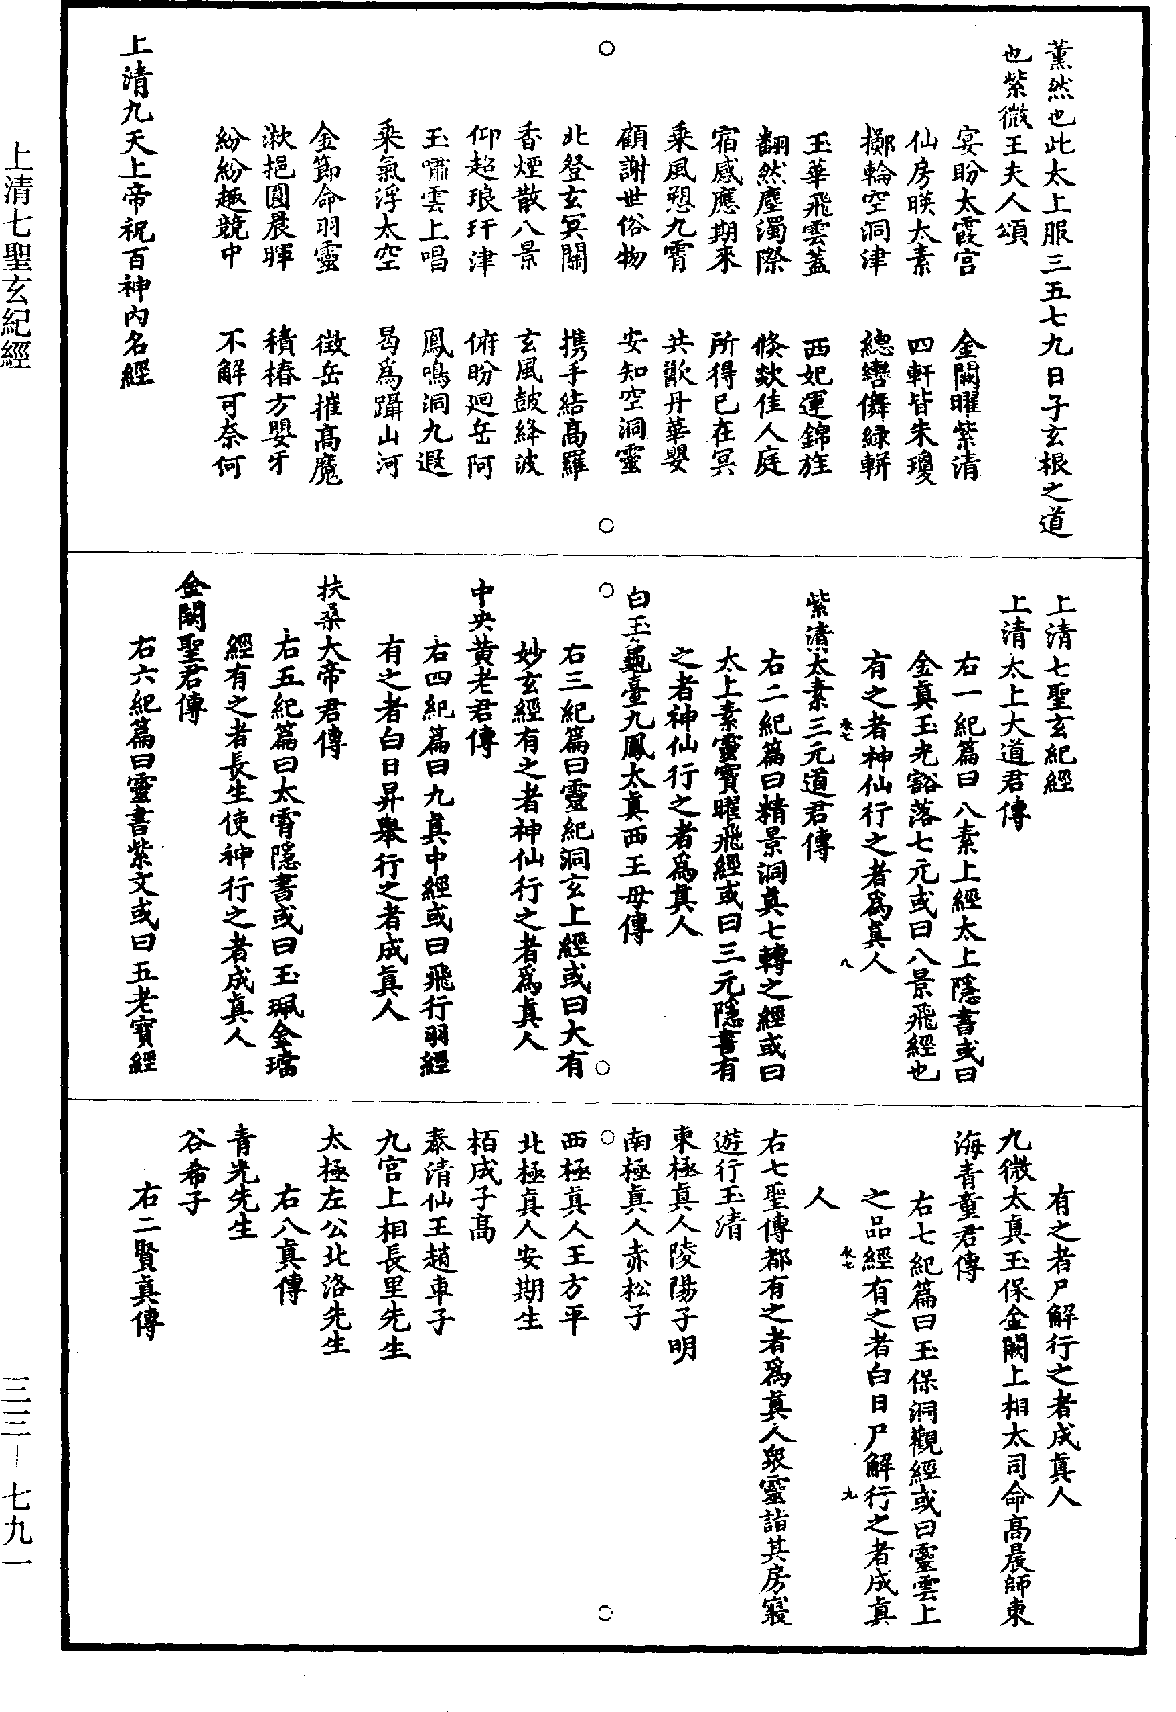 薰然也此太上服三五七九日子玄根之道
也紫微王夫人頌
宴盼太霞宮　金闕曜紫清
仙房暎太素　四軒皆朱瓊
擲輪空洞津　總轡儛綠軿
玉華飛雲蓋　西妃運錦旌
翻然塵濁際　倏欻佳人庭
宿感應期來　所得已在冥
乘風憩九霄　共歡丹華嬰
顧謝世俗物　安知空洞靈
北登玄冥闕　攜手結高羅
香煙散八景　玄風鼓絳波
仰超琅玕津　俯盼廻岳阿
玉嘯雲上唱　鳳鳴洞九遐
乘氣浮太空　曷爲躡山河
金節命羽靈　徵岳摧高魔
漱挹圓晨暉　積椿方嬰牙
紛紛趣競中　不解可奈何
上清九天上帝祝百神內名經
上清七聖玄紀經
上清太上大道君傳
右一紀篇曰八素上經太上隱書或曰
金眞玉光豁落七元或曰八景飛經也
有之者神仙行之者爲眞人
八
紫清太素三元道君傳
右二紀篇曰精景洞眞七轉之經或曰
太上素靈寶曜飛經或曰三元隱書有
之者神仙行之者爲眞人
白玉龜臺九鳳太眞西王母傳
右三紀篇曰靈紀洞玄上經或曰大有
妙玄經有之者神仙行之者爲眞人
中央黃老君傳
右四紀篇曰九眞中經或曰飛行羽經
有之者白日昇舉行之者成眞人
扶桑大帝君傳
右五紀篇曰太霄隱書或曰玉珮金璫
經有之者長生使神行之者成眞人
金闕聖君傳
右六紀篇曰靈書紫文或曰五老寶經
有之者尸解行之者成眞人
九微太眞玉保金闕上相太司命高晨師東
海青童君傳
右七紀篇曰玉保洞觀經或曰靈雲上
之品經有之者白日尸解行之者成眞
九
人
右七聖傳都有之者爲眞人衆靈詣其房寢
遊行玉清
東極眞人陵陽子明
南極眞人赤松子
西極眞人王方平
北極眞人安期生
栢成子高
泰清仙王趙車子
九宮上相長里先生
太極左公北洛先生
右八眞傳
青光先生
谷希子
右二賢眞傳
上清七聖玄紀經
三三—七九一